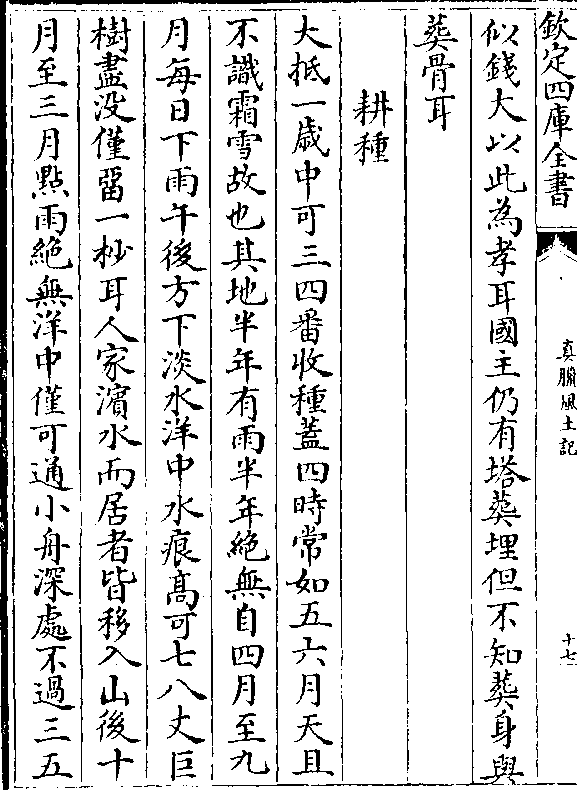 欽定四庫全書
真臘風土記
十七
似錢大以此為孝耳國主仍有塔葬埋但不知葬身與
葬骨耳
耕種
大抵一歲中可三四番收種蓋四時常如五六月天且
不識霜雪故也其地半年有雨半年絕無自四月至九
月每日下雨午後方下淡水洋中水痕高可七八丈巨
樹盡没僅留一杪耳人家濱水而居者皆移入山後十
月至三月點雨絶無洋中僅可通小舟深處不過三五